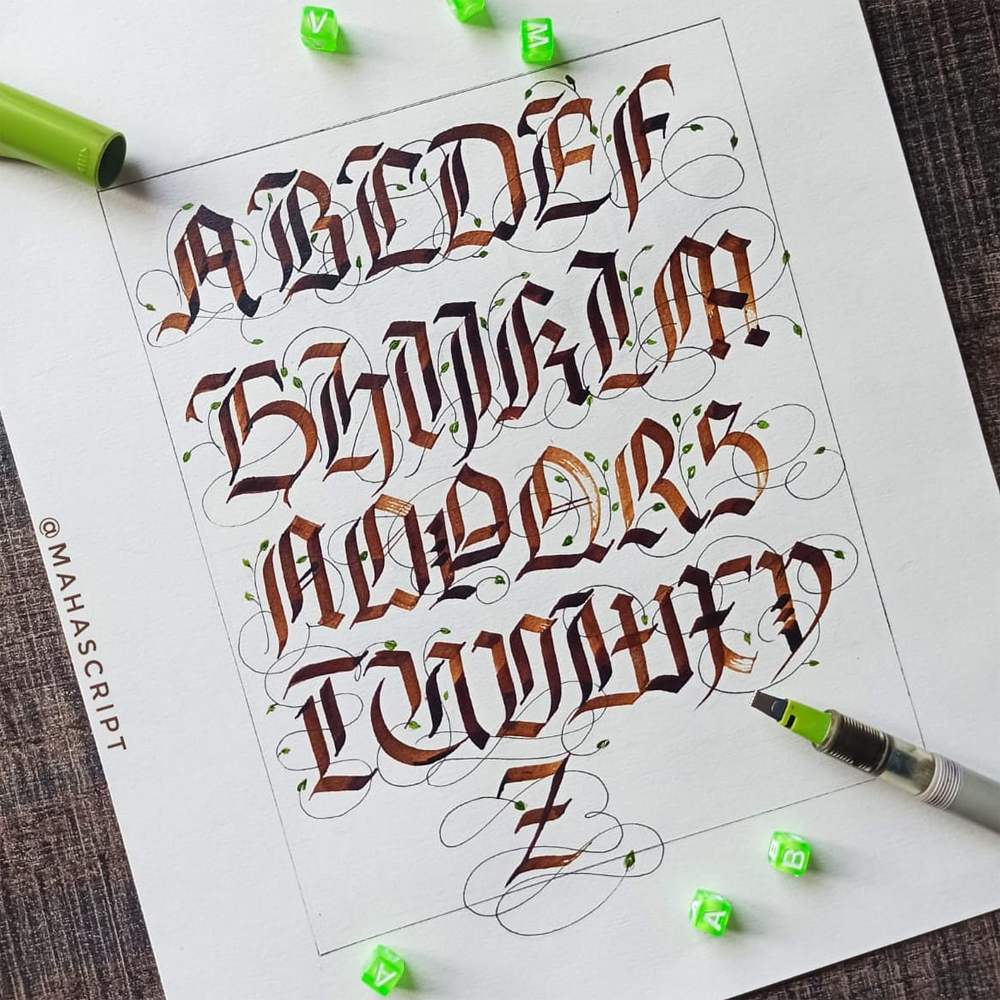 V
M
ABCDEF
GHIJKLM
NOPQRS
TUVWXY
Z
@MAHASCRIPT
B
A
A